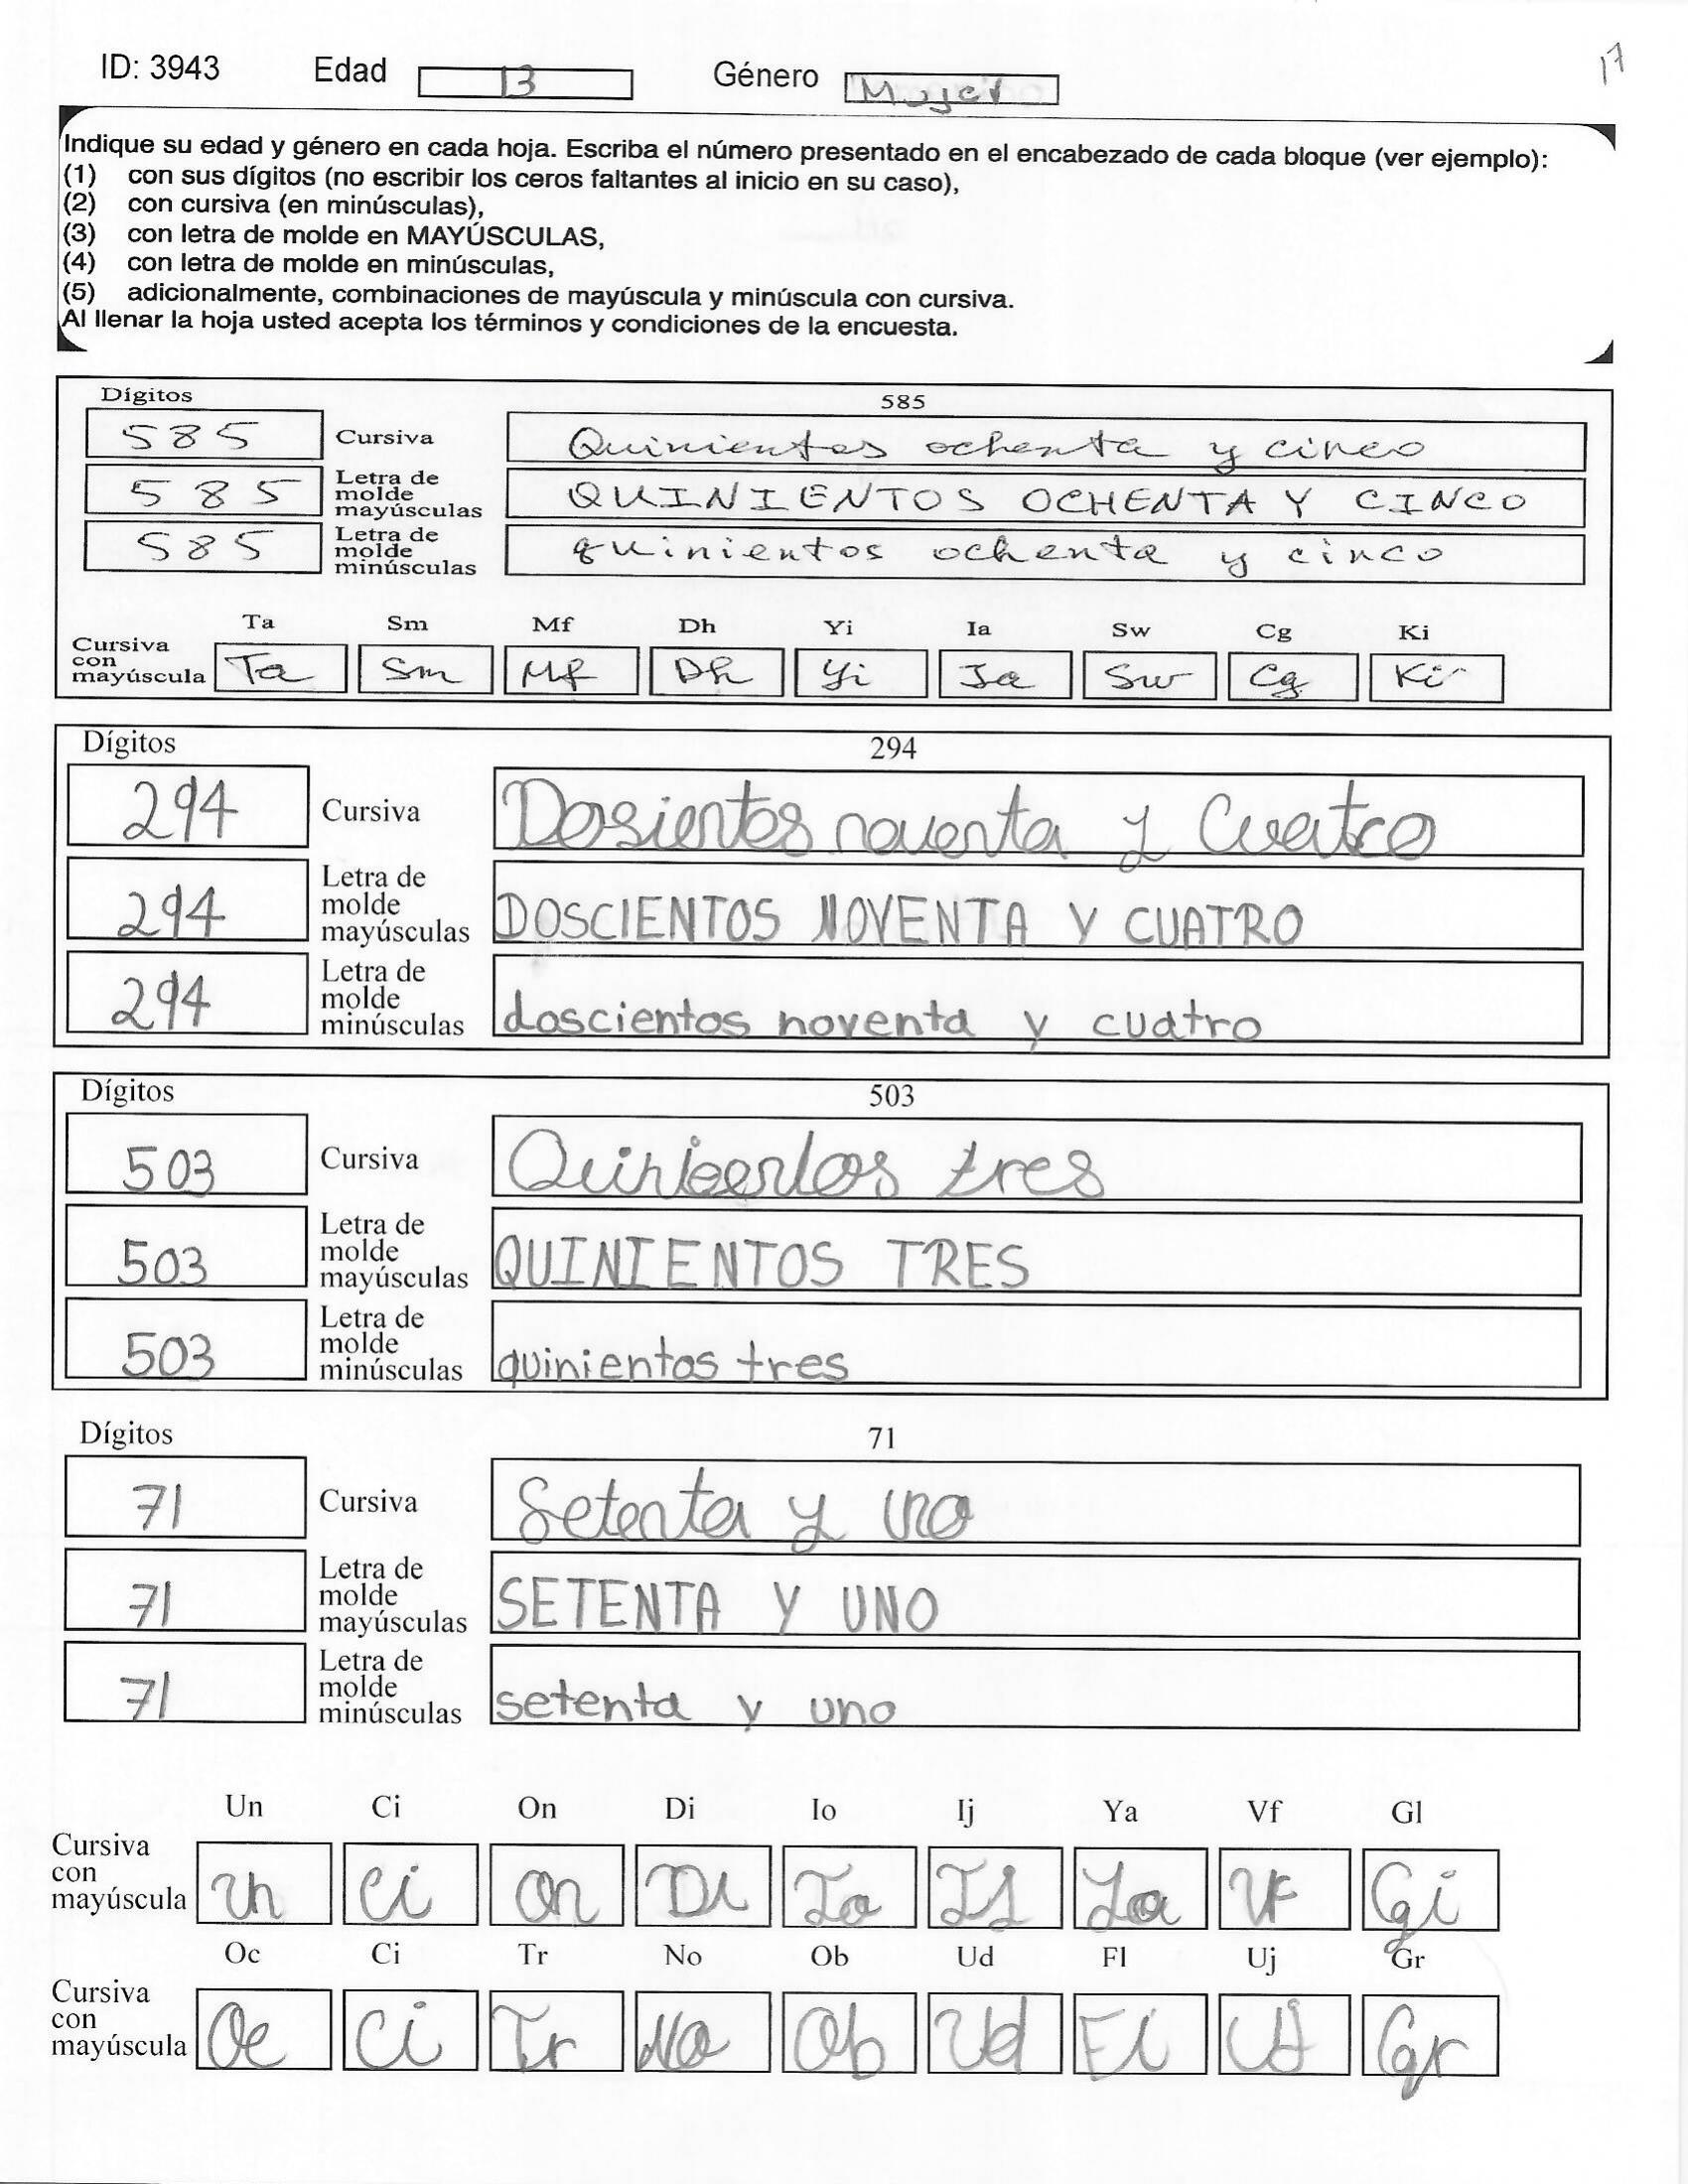 ID: 3943 Edad 13 Género Mujer 17
Indique su edad y género en cada hoja. Escriba el número presentado en el encabezado de cada bloque (ver ejemplo):
(1) con sus dígitos (no escribir los ceros faltantes al inicio en su caso),
(2) con cursiva (en minúsculas),
(3) con letra de molde en MAYÚSCULAS,
(4) con letra de molde en minúsculas,
(5) adicionalmente, combinaciones de mayúscula y minúscula con cursiva.
Al llenar la hoja usted acepta los términos y condiciones de la encuesta.
Dígitos 585
585 Cursiva Quinientos ochenta y cinco
585 Letra de molde mayúsculas QUINIENTOS OCHENTA Y CINCO
585 Letra de molde minúsculas quinientos ochenta y cinco
Ta Sm Mf Dh Yi Ia Sw Cg Ki
Cursiva con mayúscula Ta Sm Mf Dh Yi Ia Sw Cg Ki
Dígitos 294
294 Cursiva Dosientos noventa y Cuatro
294 Letra de molde mayúsculas DOSCIENTOS NOVENTA Y CUATRO
294 Letra de molde minúsculas doscientos noventa y cuatro
Dígitos 503
503 Cursiva Quinientos tres
503 Letra de molde mayúsculas QUINIENTOS TRES
503 Letra de molde minúsculas quinientos tres
Dígitos 71
71 Cursiva Setenta y uno
71 Letra de molde mayúsculas SETENTA Y UNO
71 Letra de molde minúsculas setenta y uno
Un Ci On Di Io Ij Ya Vf Gl
Cursiva con mayúscula Un Ci On Di Io Ij Ya Vf Gi
Oc Ci Tr No Ob Ud Fl Uj Gr
Cursiva con mayúscula Oc Ci Tr No Ob Ud Fl Uj Gr